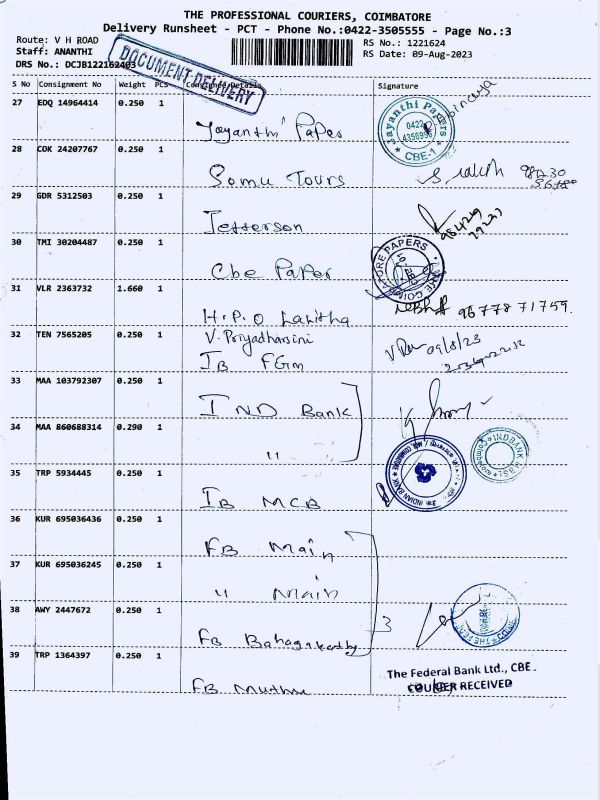 THE PROFESSIONAL COURIERS, COIMBATORE
Delivery Runsheet - PCT - Phone No.:0422-3505555 - Page No.:3
Route: V H ROAD
RS No.: 1221624
Staff: ANANTHI
RS Date: 09-Aug-2023
DRS No.: DCJB122162403
DOCUMENT DELIVERY
S No Consignment No Weight PCS Consignee Details Signature
27 EDQ 14964414 0.250 1
Jayanthi Paper
Jayanthi Papers
0422
CBE-1
28 COK 24207767 0.250 1
Somu Tours
29 GDR 5312503 0.250 1
Jefferson
30 TMI 30204487 0.250 1
Cbe Paper
31 VLR 2363732 1.660 1
H.P.O Lalitha
96778 71759.
32 TEN 7565205 0.250 1
V. Priyadharsini
IB FGm
09/8/23
33 MAA 103792307 0.250 1
IND Bank
34 MAA 860688314 0.290 1
"
35 TRP 5934445 0.250 1
IB MCB
INDIAN BANK
36 KUR 695036436 0.250 1
FB Main
37 KUR 695036245 0.250 1
" Main
38 AWY 2447672 0.250 1
3
FB
39 TRP 1364397 0.250 1
FB Muthu
The Federal Bank Ltd., CBE
COURIER RECEIVED